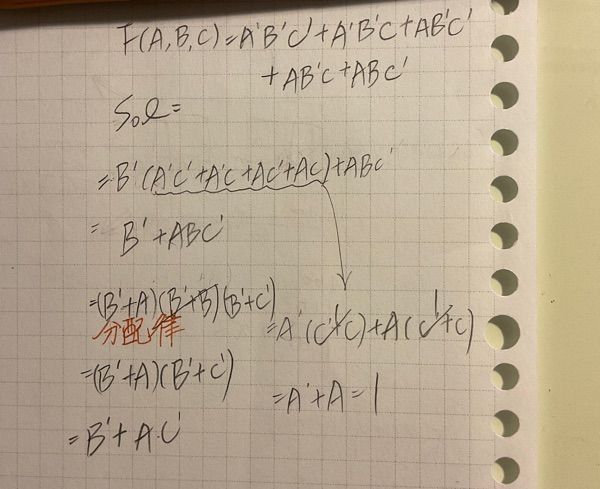 F(A,B,C)=A'B'C'+A'B'C+AB'C'
+AB'C+ABC'
Sol=
=B'(A'C'+A'C+AC'+AC)+ABC'
= B'+ABC'
=(B'+A)(B'+B)(B'+C')
分配律
=(B'+A)(B'+C')
=B'+A·C'
=A'(C'+C)+A(C'+C)
1
1
=A'+A=1